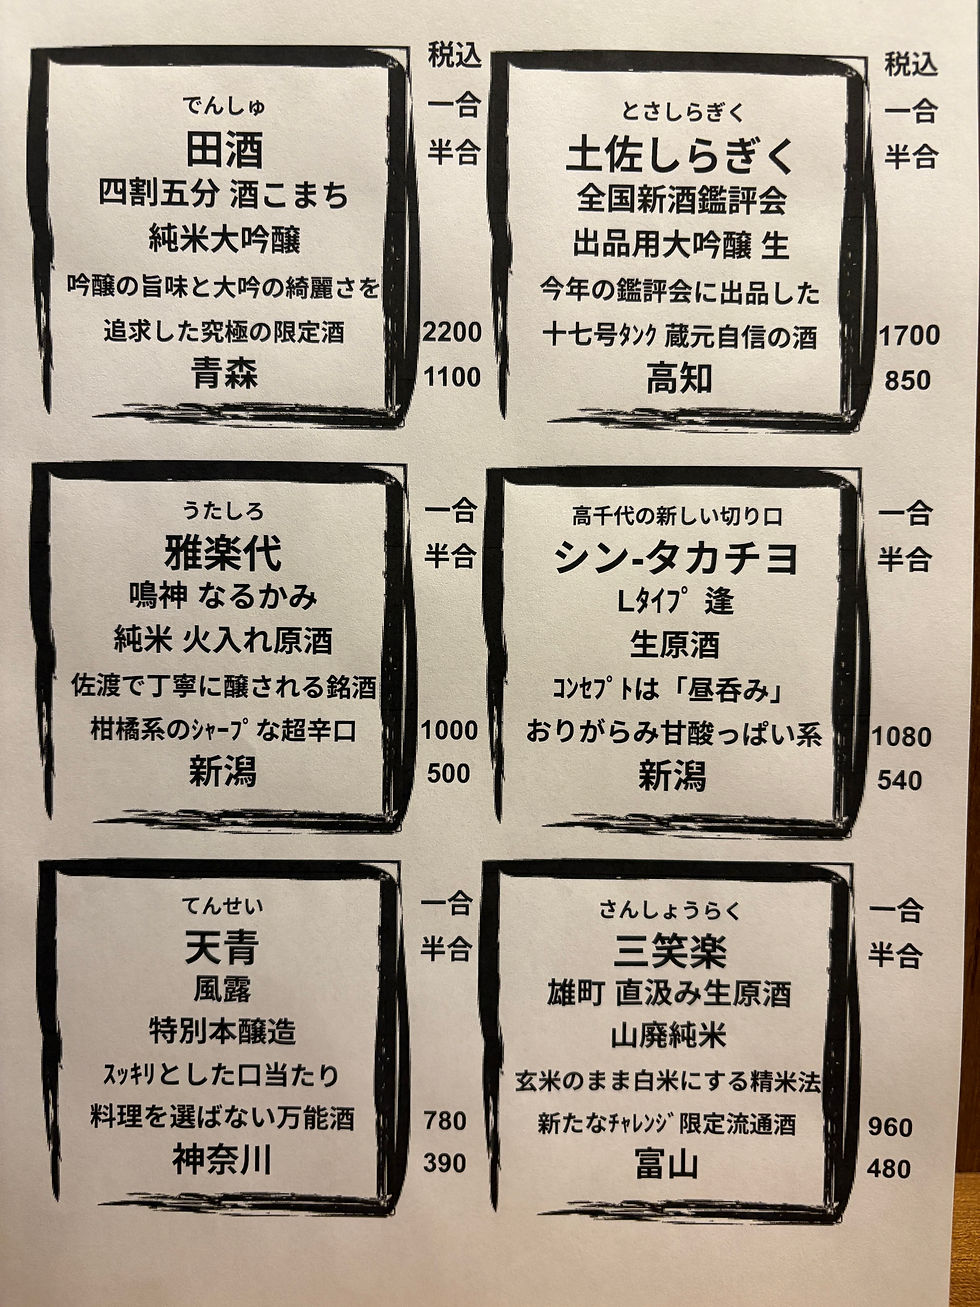 でんしゅ
田酒
四割五分 酒こまち
純米大吟醸
吟醸の旨味と大吟の綺麗さを
追求した究極の限定酒
青森
税込
一合
半合
2200
1100
とさしらぎく
土佐しらぎく
全国新酒鑑評会
出品用大吟醸 生
今年の鑑評会に出品した
十七号ﾀﾝｸ 蔵元自信の酒
高知
税込
一合
半合
1700
850
うたしろ
雅楽代
鳴神 なるかみ
純米 火入れ原酒
佐渡で丁寧に醸される銘酒
柑橘系のｼｬｰﾌﾟな超辛口
新潟
一合
半合
1000
500
高千代の新しい切り口
シン-タカチヨ
Lﾀｲﾌﾟ 逢
生原酒
ｺﾝｾﾌﾟﾄは「昼呑み」
おりがらみ甘酸っぱい系
新潟
一合
半合
1080
540
てんせい
天青
風露
特別本醸造
ｽｯｷﾘとした口当たり
料理を選ばない万能酒
神奈川
一合
半合
780
390
さんしょうらく
三笑楽
雄町 直汲み生原酒
山廃純米
玄米のまま白米にする精米法
新たなﾁｬﾚﾝｼﾞ限定流通酒
富山
一合
半合
960
480